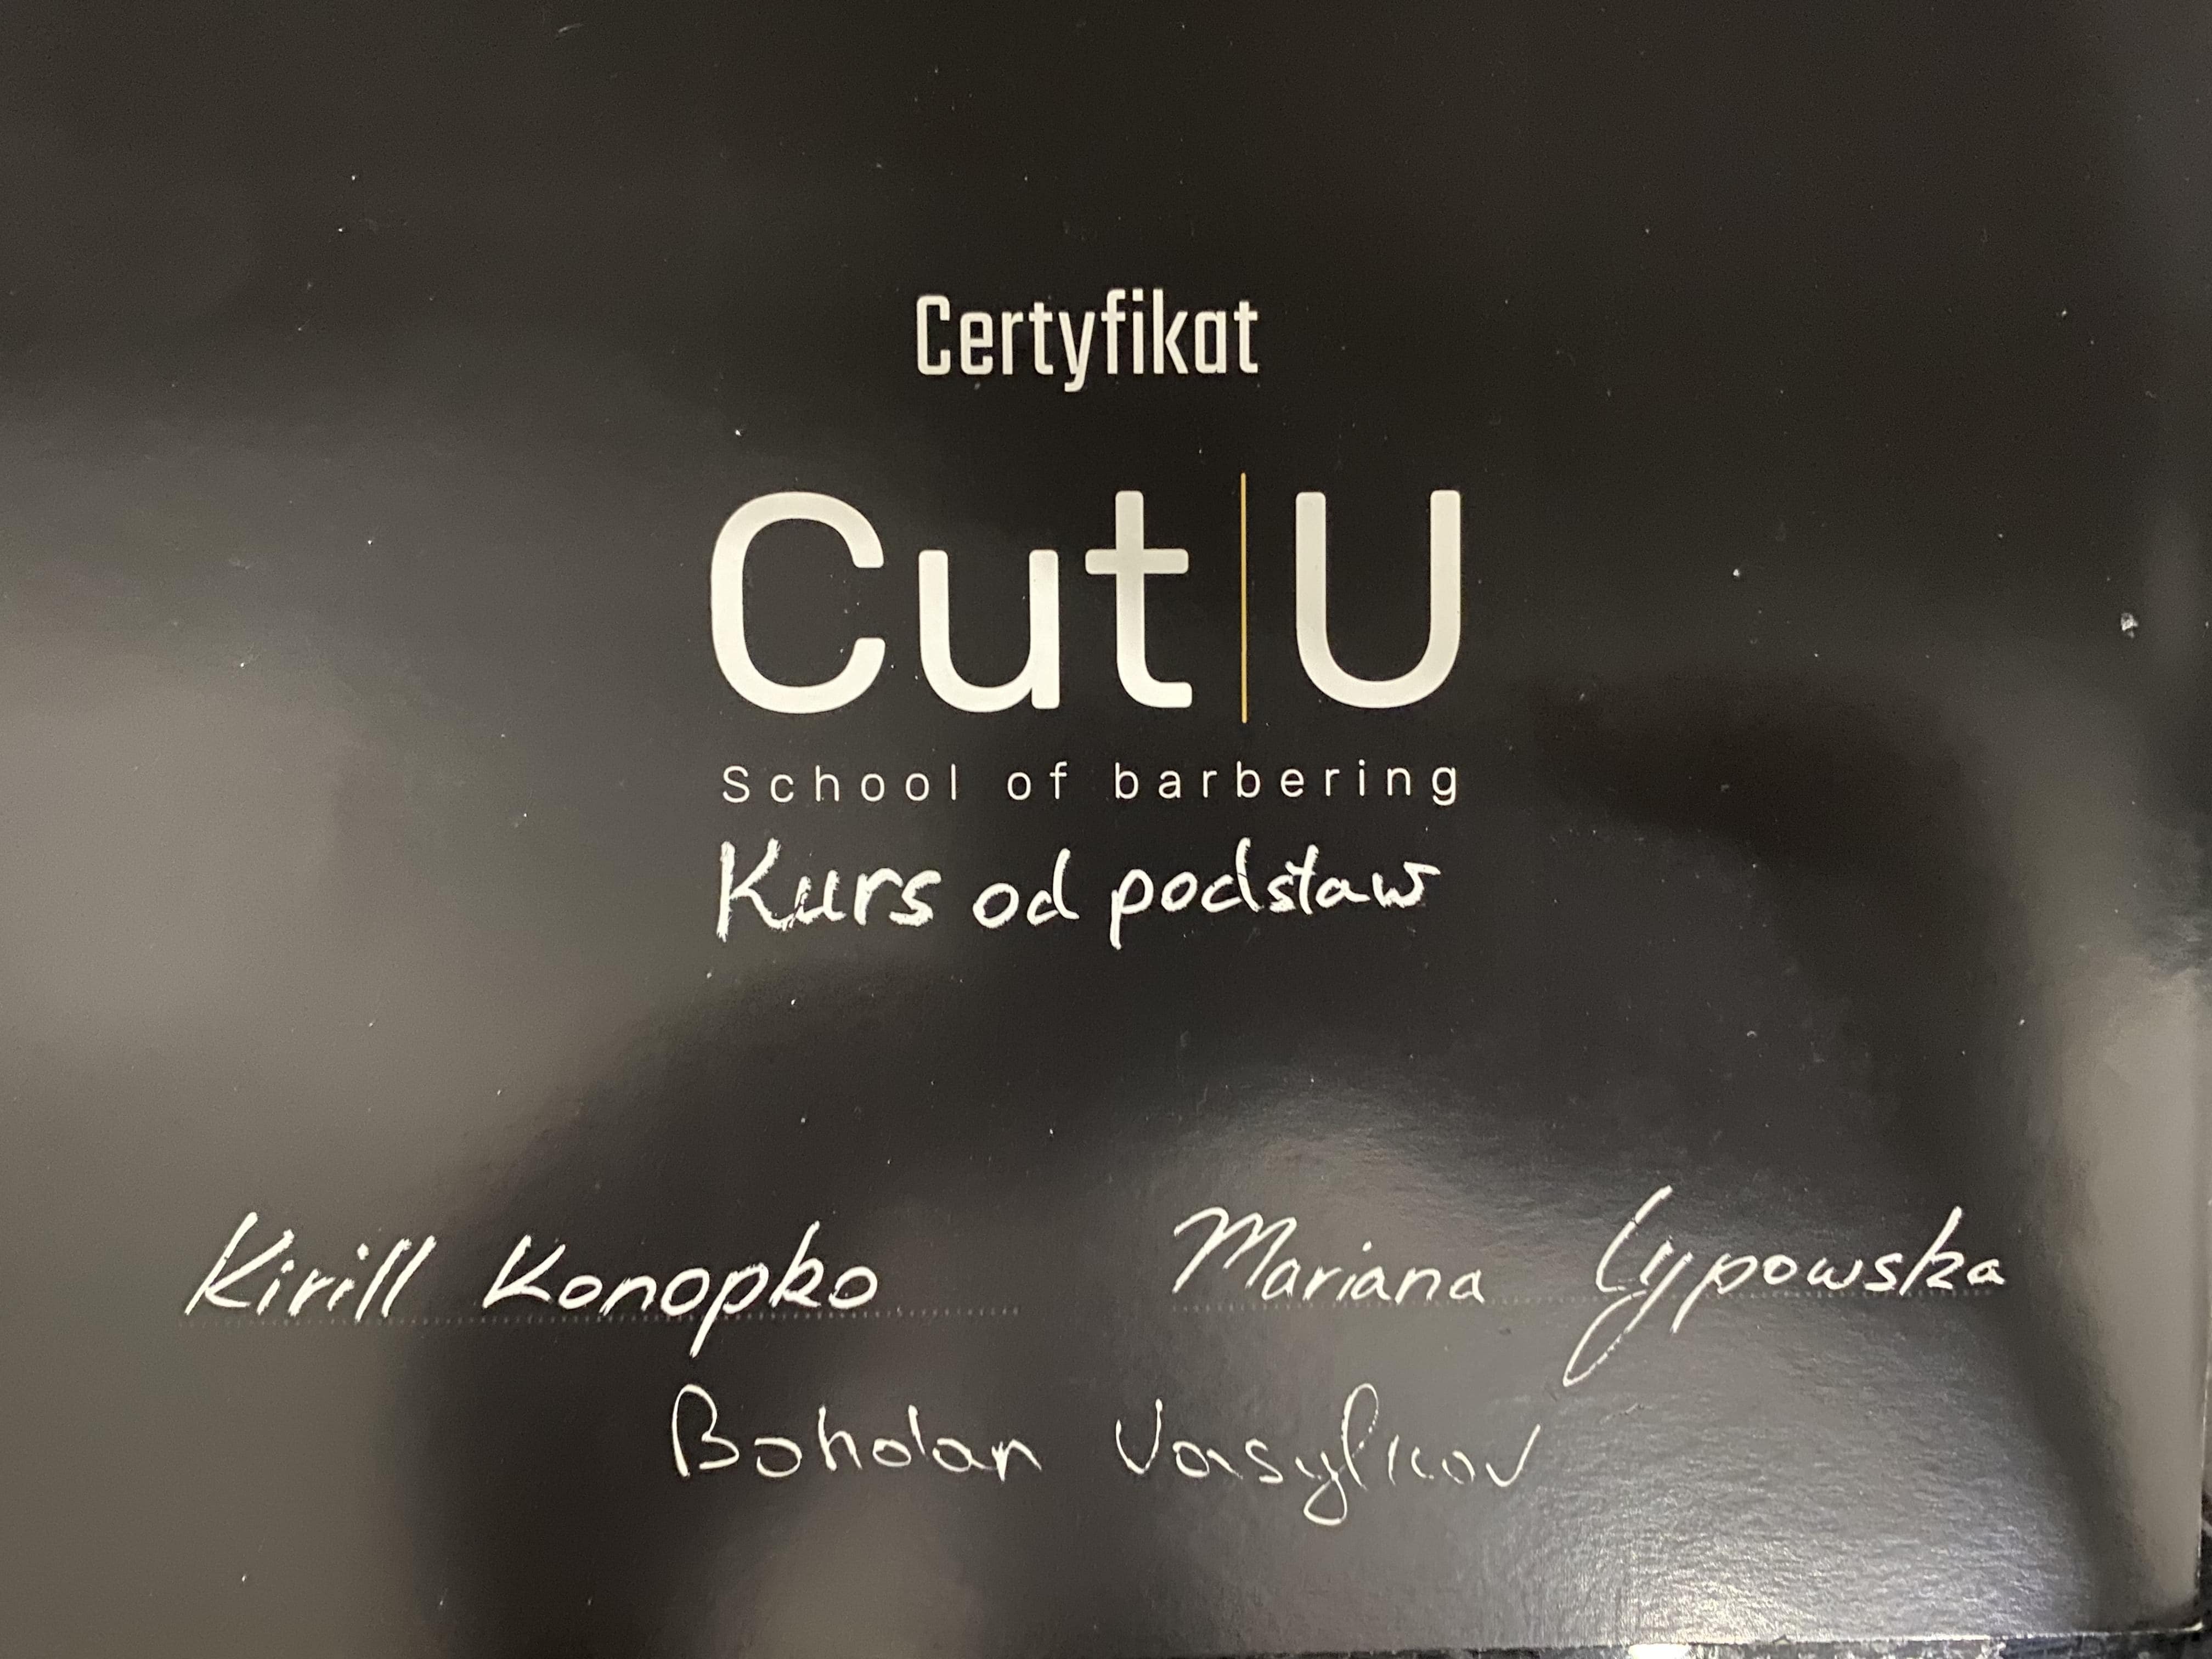 Certyfikat
Cut|U
School of barbering
Kurs od podstaw
Kirill Konopko Mariana Lypowska
Bohdan Vasylkov